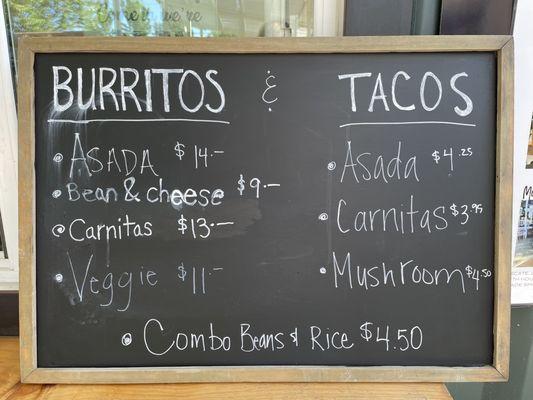 BURRITOS & TACOS
• ASADA $14.–
• Bean & cheese $9.–
• Carnitas $13.–
• Veggie $11.–
• Asada $4.25
• Carnitas $3.95
• Mushroom $4.50
• Combo Beans & Rice $4.50